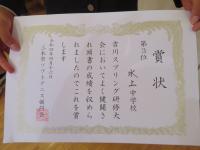 賞状
第3位
氷上中学校
吉川スプリング研修大
会においてよく健闘さ
れ頭書の成績を収めら
れましたのでこれを賞
します